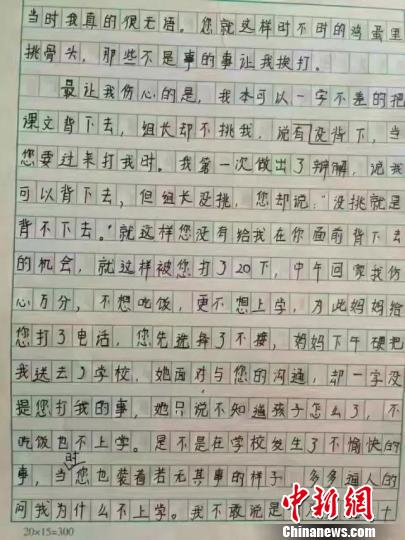 当时我真的很无语。您就这样时不时的鸡蛋里
挑骨头，那些不是事的事让我挨打。
最让我伤心的是，我本可以一字不差的把
课文背下去，组长却不挑我，说有没背下，当
您要过来打我时。我第一次做出了辩解，说我
可以背下去，但组长没挑，您却说：“没挑就是
背不下去。”就这样您没有给我在你面前背下去
的机会，就这样被您打了20下，中午回家我伤
心万分，不想吃饭，更不想上学，为此妈妈给
您打了电话，您先选择了不接，妈妈下午硬把
我送去了学校，她面对与您的沟通，却一字没
提您打我的事，她只说不知道孩子怎么了，不
吃饭也不上学。是不是在学校发生了不愉快的
事，当时您也装着若无其事的样子，多多逼人的
问我为什么不上学。我不敢说是
十
20×15=300
中新网
Chinanews.com